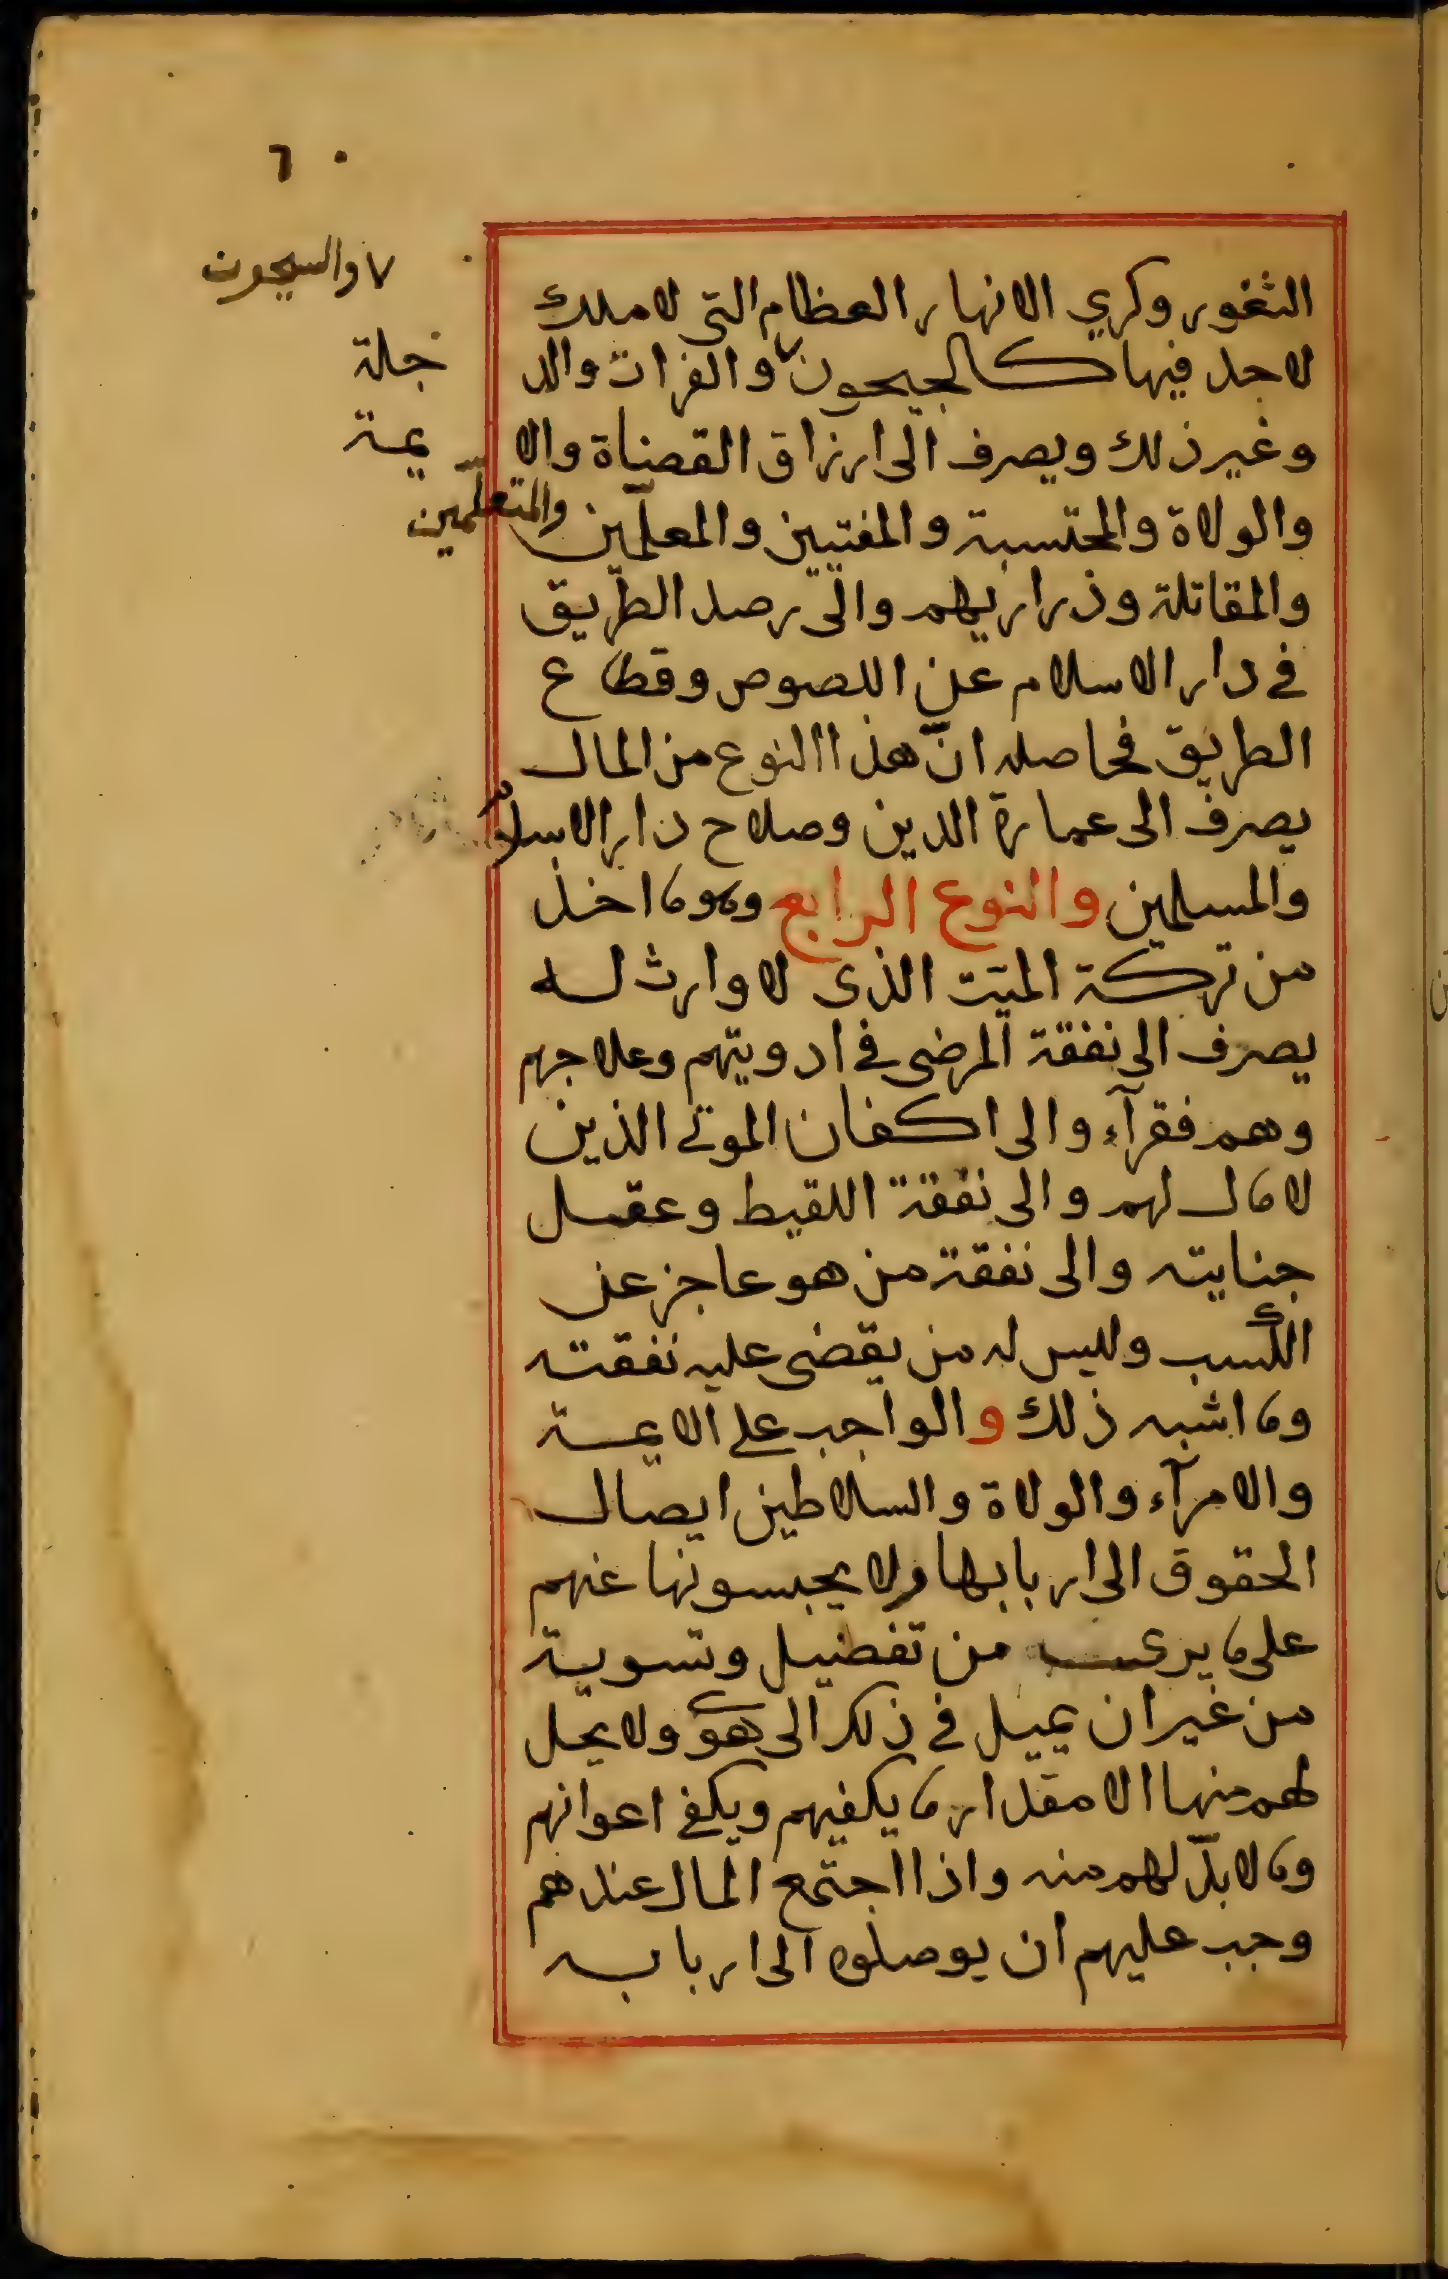 ٦٠
الثغور وكري الانهار العظام التى لا ملك
لاحد فيها كالجيحون ٧ والفرات والد جلة
٧ والسيحون
وغير ذلك ويصرف الى ارزاق القضاة والا يمة
والولاة والمحتسبة والمفتيين والمعلّمين والمتعلّمين
والمقاتلة وذراريهم والى رصد الطريق
فى دار الاسلام عن اللصوص وقطاع
الطريق فحاصله انّ هذا النوع من المال
يصرف الى عمارة الدين وصلاح دار الاسلام
والمسلمين والنوع الرابع وهو ما اخذ
من تركة الميّت الذى لا وارث له
يصرف الى نفقة المرضى فى ادويتهم وعلاجهم
وهم فقرآء والى اكفان الموتى الذين
لا مال لهم والى نفقة اللقيط وعقل
جنايته والى نفقة من هو عاجز عن
الكسب وليس له من يقضى عليه نفقته
وما اشبه ذلك والواجب على الايمة
والامرآء والولاة والسلاطين ايصال
الحقوق الى اربابها ولا يحبسونها عنهم
على ما يرى من تفضيل وتسوية
من غير ان يميل فى ذلك الى هوى ولا يحل
لهم منها الا مقدار ما يكفيهم ويكفى اعوانهم
وما لا بدّ لهم منه واذا اجتمع المال عندهم
وجب عليهم ان يوصلوه الى اربابه